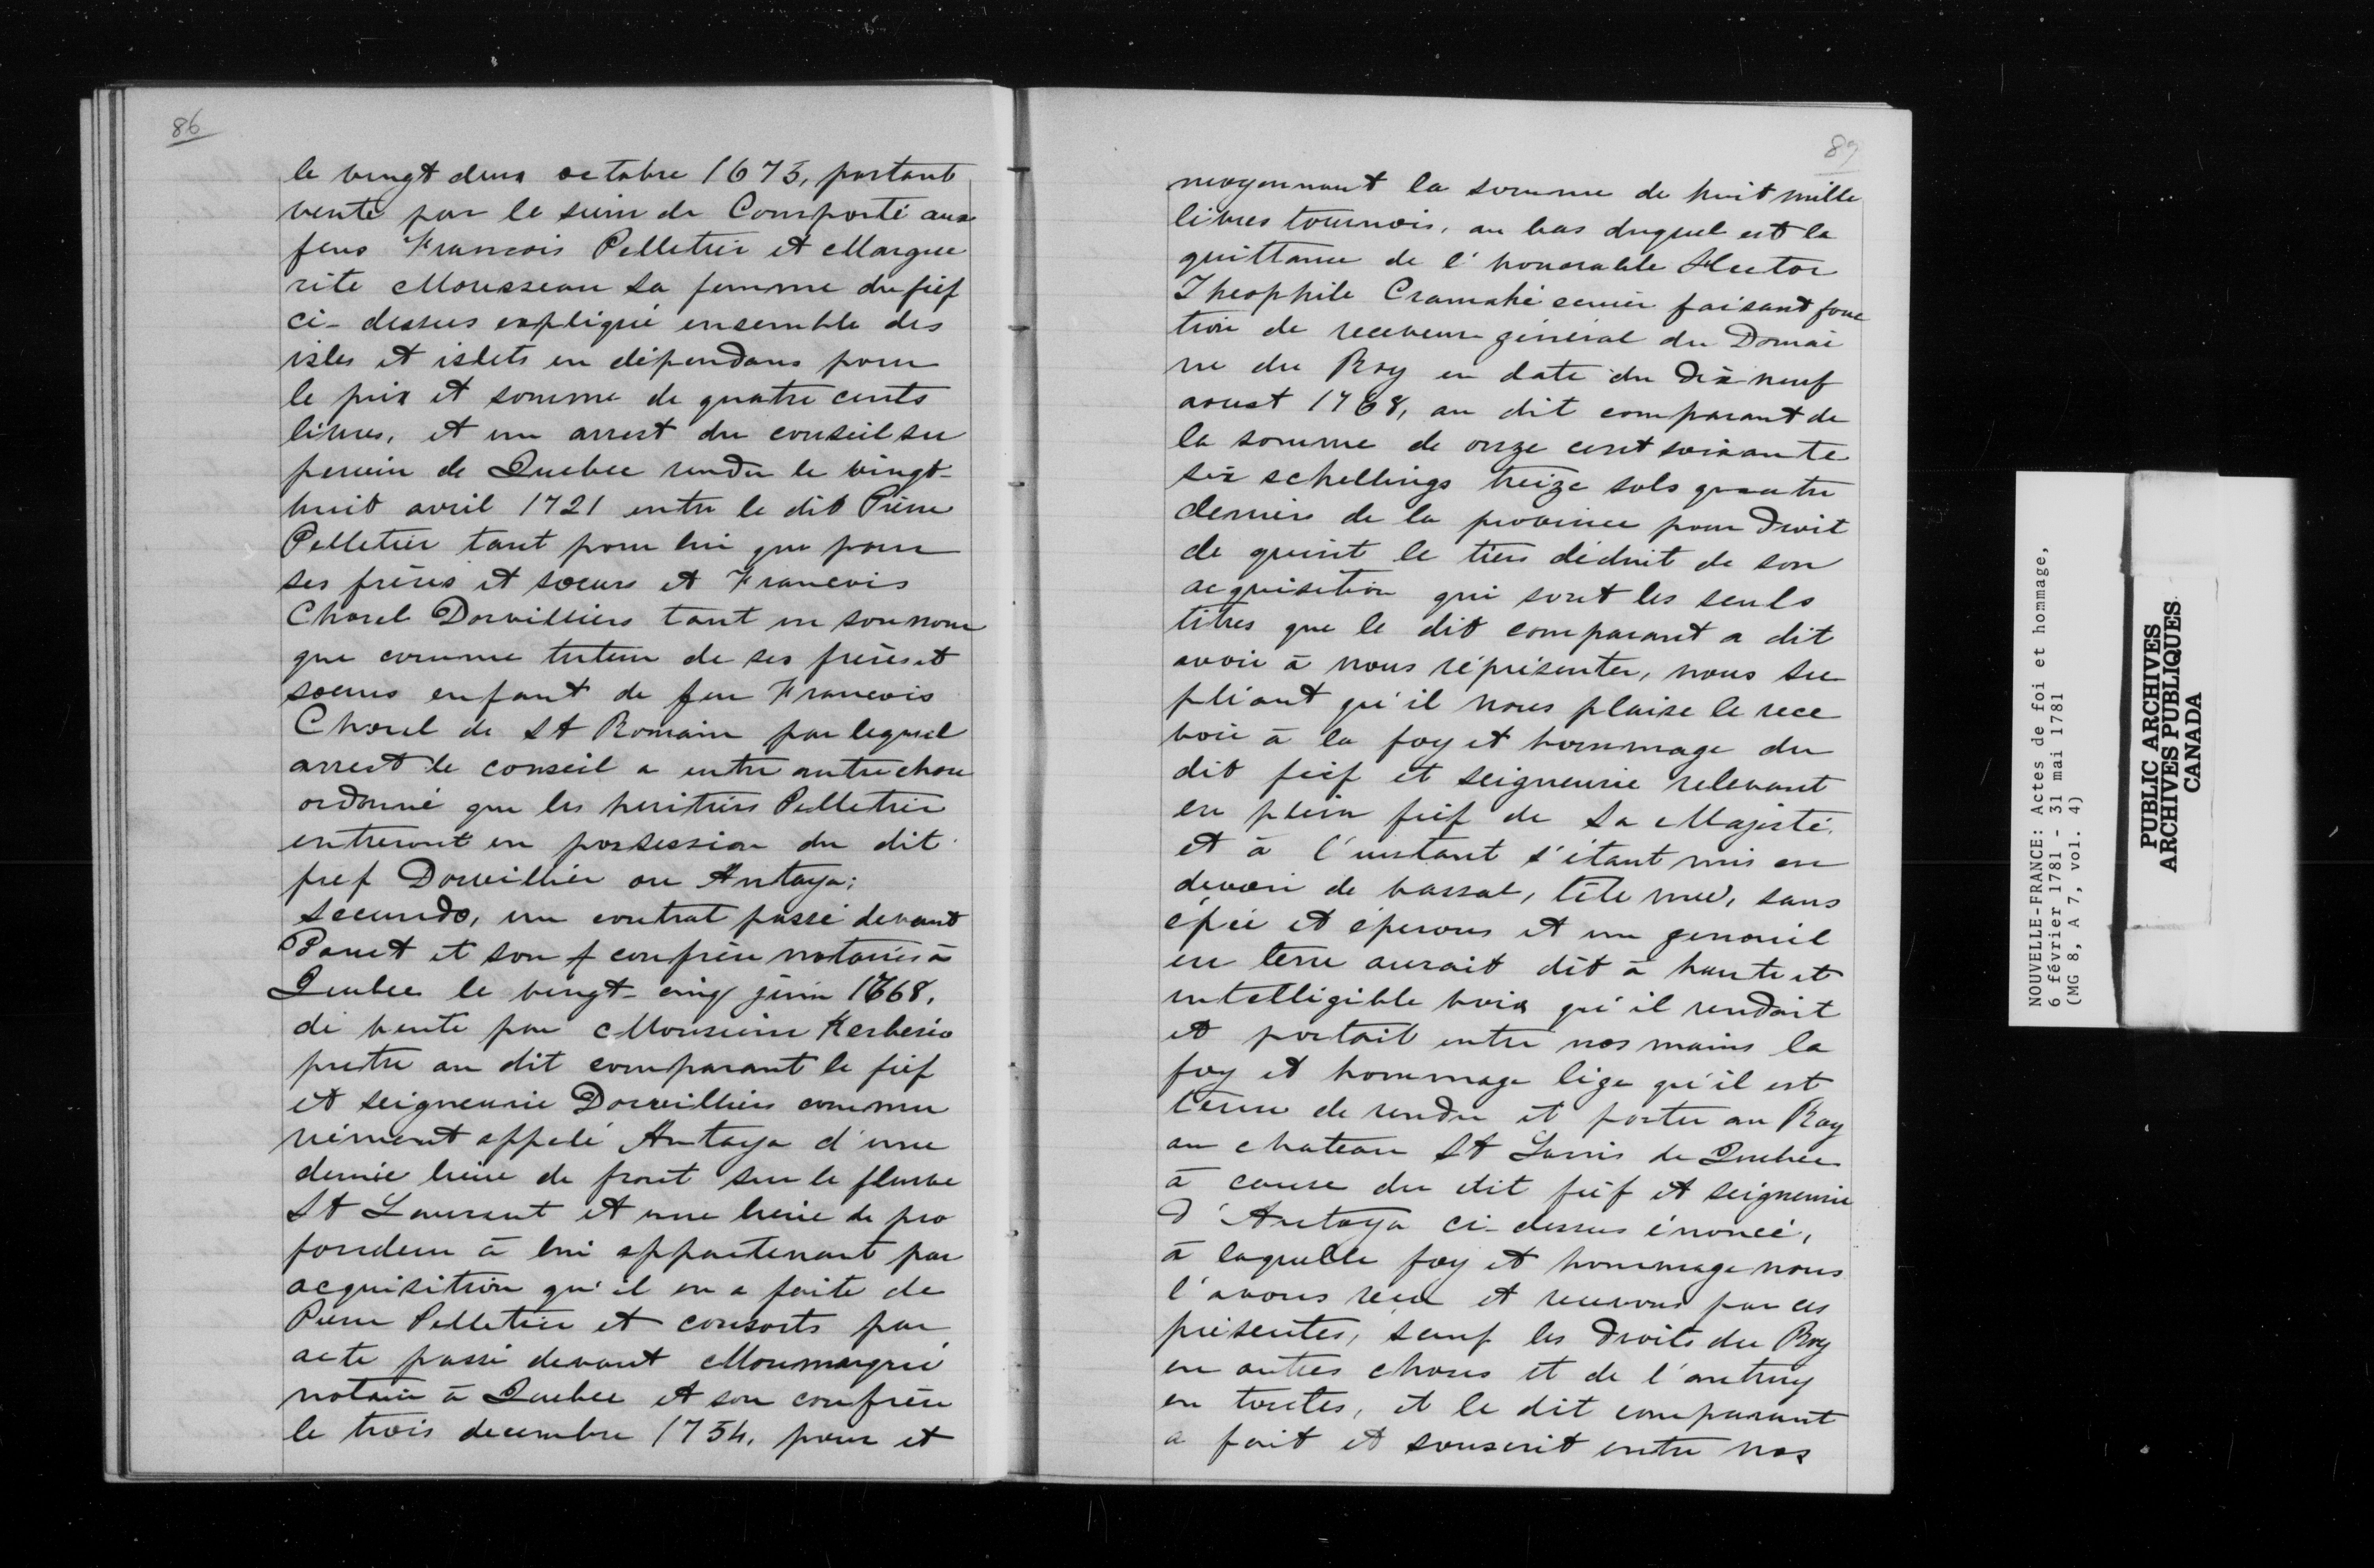 86
le vingt deux octobre 1675, portant
vente par le sieur de Comporté aux
feus Francois Pelletier et Margue
rite Mousseau sa femme du fief
ci-dessus expliqué ensemble des
isles et islets en dépendans pour
le prix et somme de quatre cents
livres, et un arrest du conseil su
perieur de Quebec rendu le vingt-
huit avril 1721 entre le dit Pierre
Pelletier tant pour lui que pour
ses frères et soeurs et Francois
Chorel Dorvilliers tant en son nom
que comme tuteur de ses frères et
soeurs enfant de feu Francois
Chorel de St Romain par lequel
arrest le conseil a entre autre chose
ordonné que les heritiers Pelletier
entreront en possession du dit
fief Dorvillier ou Antaya;
Secundo, un contrat passé devant
Panet et son confrère notaires à
Quebec le vingt-cinq juin 1768,
de vente par Monsieur Kerberio
pretre au dit comparant le fief
et seigneurie Dorvilliers commu
nément appelé Antaya d'une
demie lieue de front sur le fleuve
St Laurent et une lieue de pro
fondeur à lui appartenant par
acquisition qu'il en a faite de
Pierre Pelletier et consorts par
acte passé devant Moumarqué
notaire à Quebec et son confrère
le trois decembre 1754, pour et
87
moyennant la somme de huit mille
livres tournois, au bas duquel est la
quittance de l'honorable Hector
Theophile Cramahé ecuier faisant fonc
tion de receveur général du Domai
ne du Roy en date du dix neuf
aoust 1768, au dit comparant de
la somme de onze cent soixante
six schellings treize sols quatre
deniers de la province pour droit
de quint le tiers déduit de son
acquisition qui sont les seuls
titres que le dit comparant a dit
avoir à nous réprésenter, nous su
pliant qu'il nous plaise le rece
voir à la foy et hommage du
dit fief et seigneurie relevant
en plein fief de Sa Majesté.
et à l'instant s'étant mis en
devoir de vassal, tête nue, sans
épée et éperons et un genouil
en terre aurait dit à haute et
intelligible voix qu'il rendait
et portait entre nos mains la
foy et hommage lige qu'il est
tenu de rendre et porter au Roy
au chateau St Louis de Quebec
à cause du dit fief et seigneurie
d'Antaya ci-dessus énoncé,
à laquelle foy et hommage nous
l'avons reçu et recevons par ces
présentes, sauf les droits du Roy
en autres choses et de l'autruy
en toutes, et le dit comparant
a fait et souscrit entre nos
NOUVELLE-FRANCE: Actes de foi et hommage,
6 février 1781 - 31 mai 1781
(MG 8, A 7, vol. 4)
PUBLIC ARCHIVES
ARCHIVES PUBLIQUES
CANADA